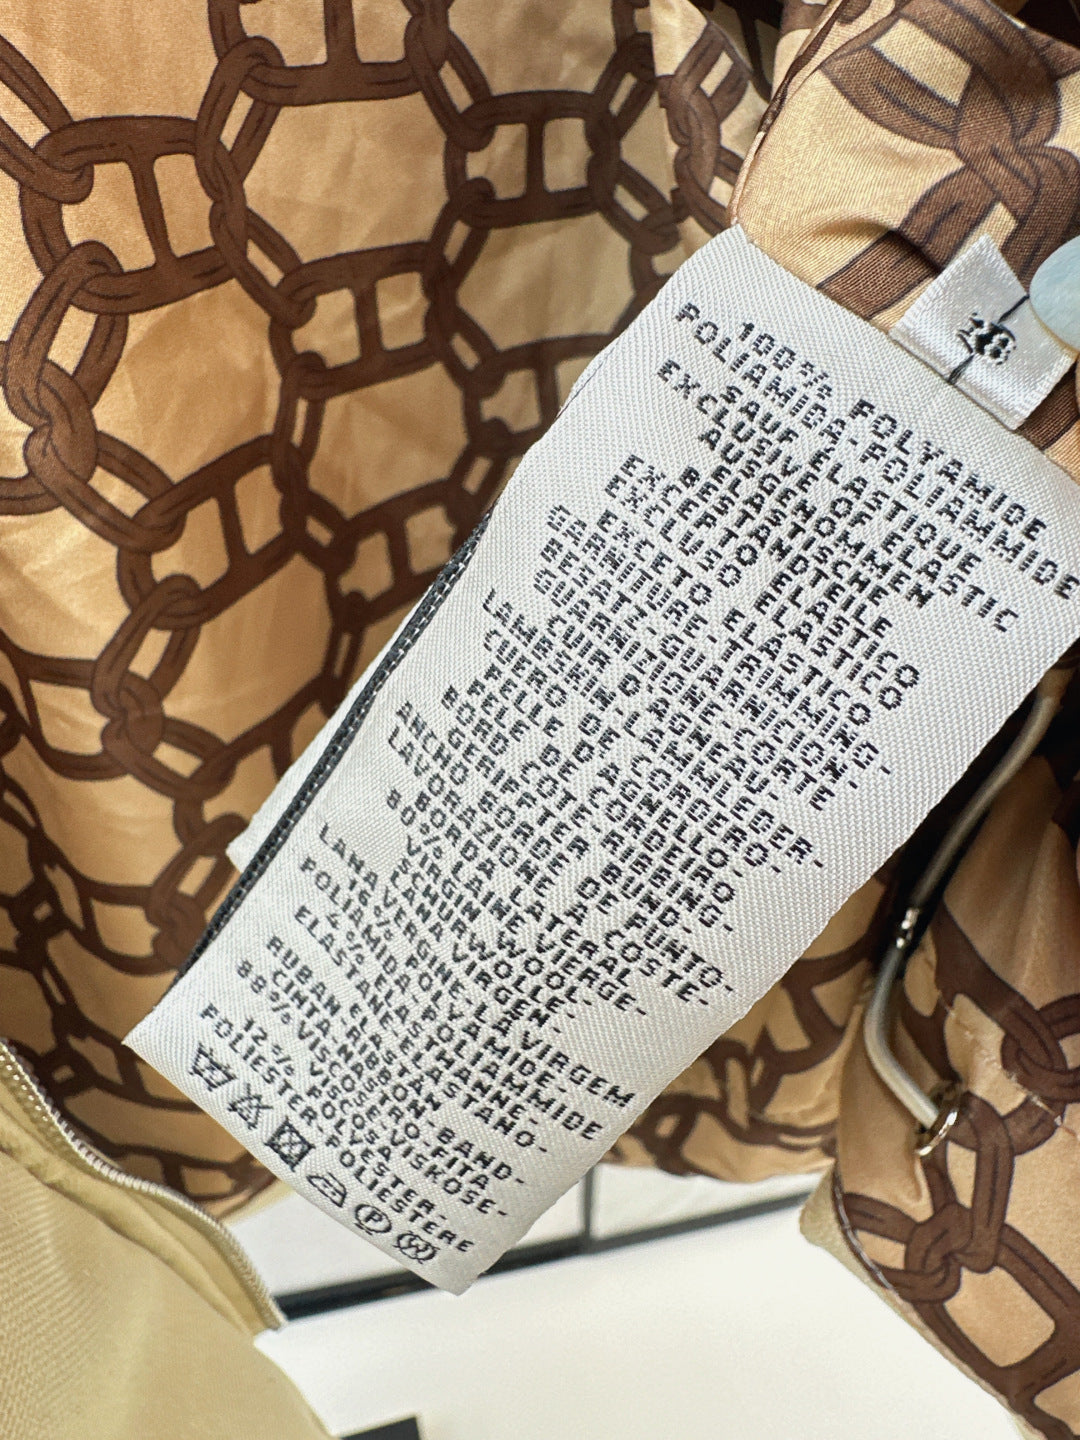 100% POLYAMIDE
POLIAMIDA-POLIAMMIDE
SAUF ELASTIQUE
EXCLUSIVE OF ELASTIC
AUSGENOMMEN
ELASTISCHE
BESTANDTEILE
EXCEPTO ELASTICO
EXCLUSO ELASTICO
EXCETO ELASTICO
GARNITURE-TRIMMING-
BESATZ-GUARNICION-
GUARNIZIONE-CORTE
CUIR D'AGNEAU-
LAMBSKIN-LAMMLEDER-
CUERO DE CORDERO-
PELLE D'AGNELLO-
PELE DE CORDEIRO
BORD COTE-RIBBING-
GERIFFTER BUND-
ANCHO BORDE DE PUNTO-
LAVORAZIONE A COSTE-
BORDA LATERAL
80% LAINE VIERGE-
VIRGIN WOOL-
SCHURWOLLE-
LANA VIRGEN-
LANA VERGINE-LA VIRGEM
16% POLYAMIDE-
POLIAMIDA-POLIAMMIDE
4% ELASTHANNE-
ELASTANE-ELASTANO-
ELASTAN
RUBAN-RIBBON-BAND-
CINTA-NASTRO-FITA
88% VISCOSE-VISKOSE-
VISCOSA
12% POLYESTER-
POLIESTER-POLIESTERE
P
W